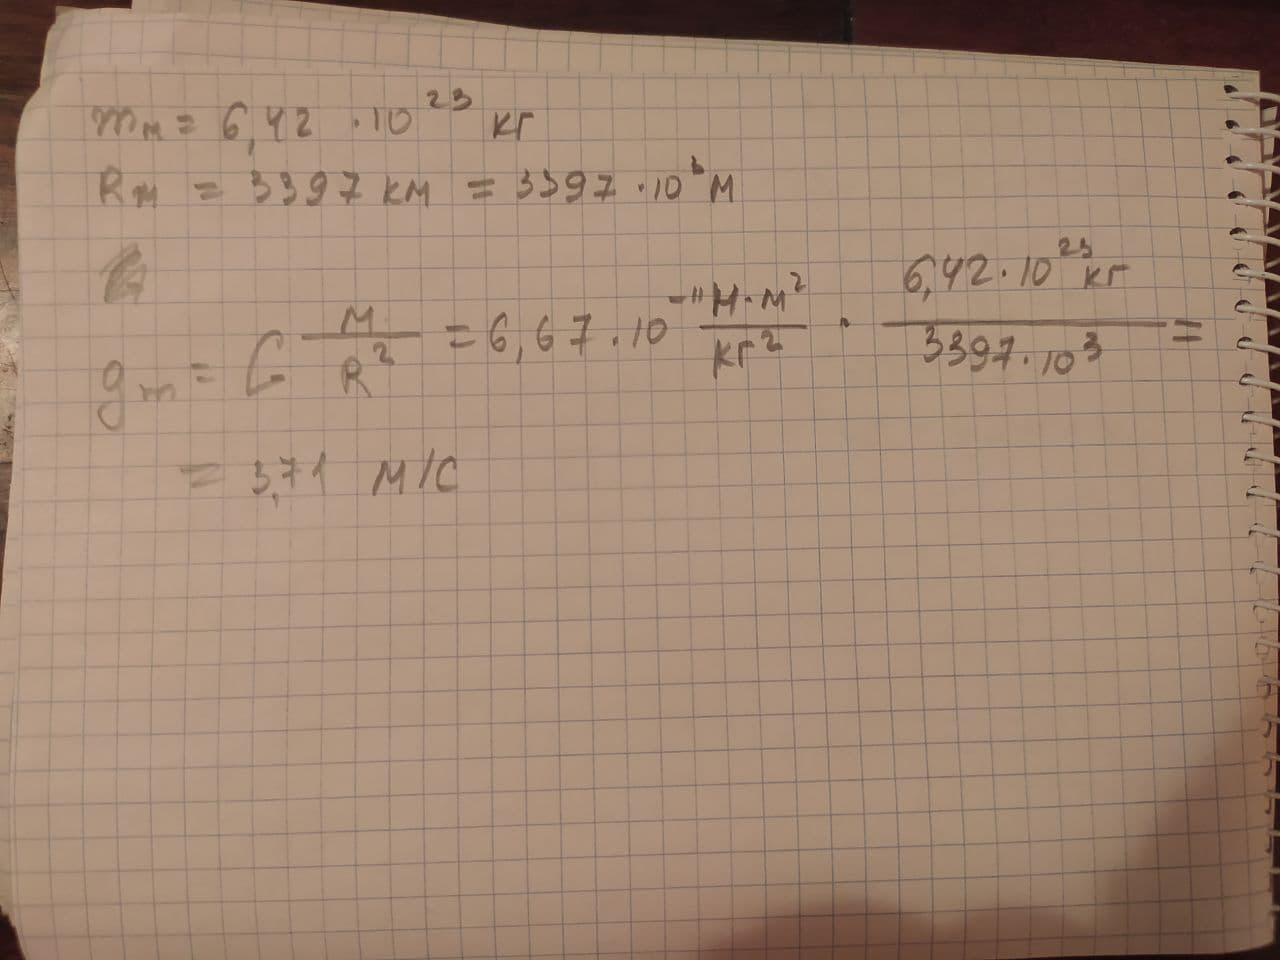 mм = 6,42 · 10²³ кг
Rм = 3397 км = 3397 · 10³ м
gm = G M/R² = 6,67 · 10⁻¹¹ Н·м²/кг² · 6,42 · 10²³ кг/3397 · 10³ =
= 3,71 м/с